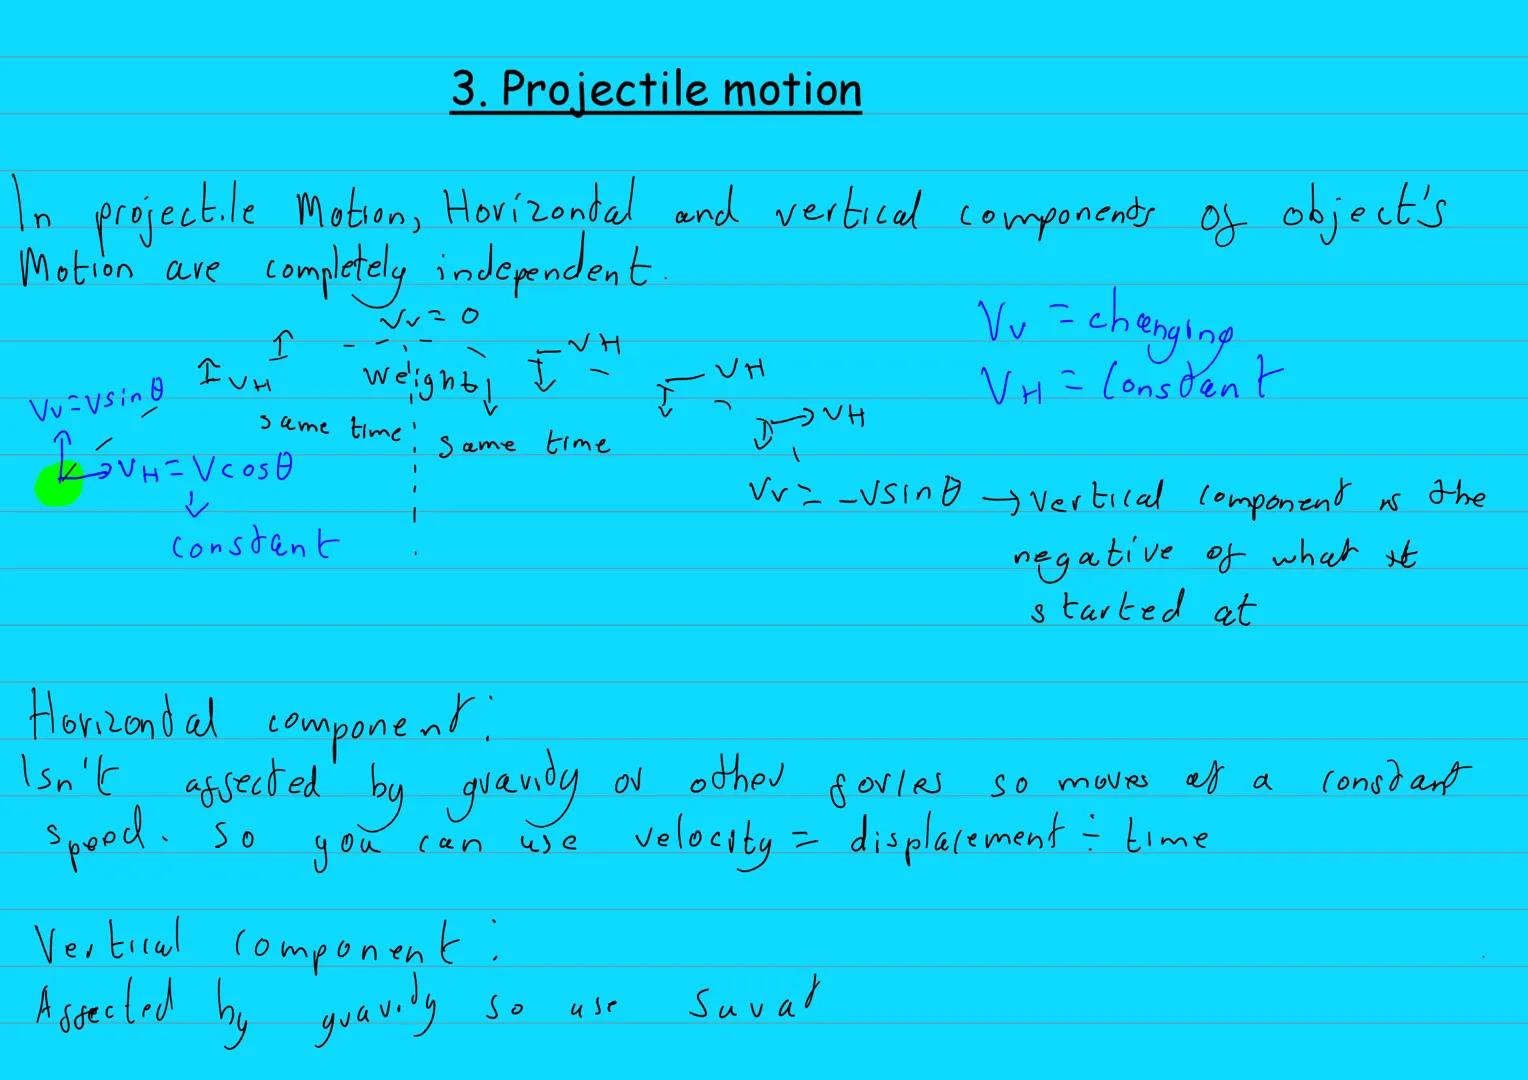 3. Projectile motion
In projectile Motion, Horizontal and vertical components of object's
Motion are completely independent.
Vv = 0
Vv = changing
VH = Constant
VH
VH
VH
Weight
Vv = Vsinθ
same time
same time
VH
VH = Vcosθ
constant
Vv = -Vsinθ → vertical component is the
negative of what it
started at
Horizontal component:
Isn't affected by gravity or other forces so moves at a constant
speed. so you can use velocity = displacement ÷ time
Vertical component:
Affected by gravity so use suvat